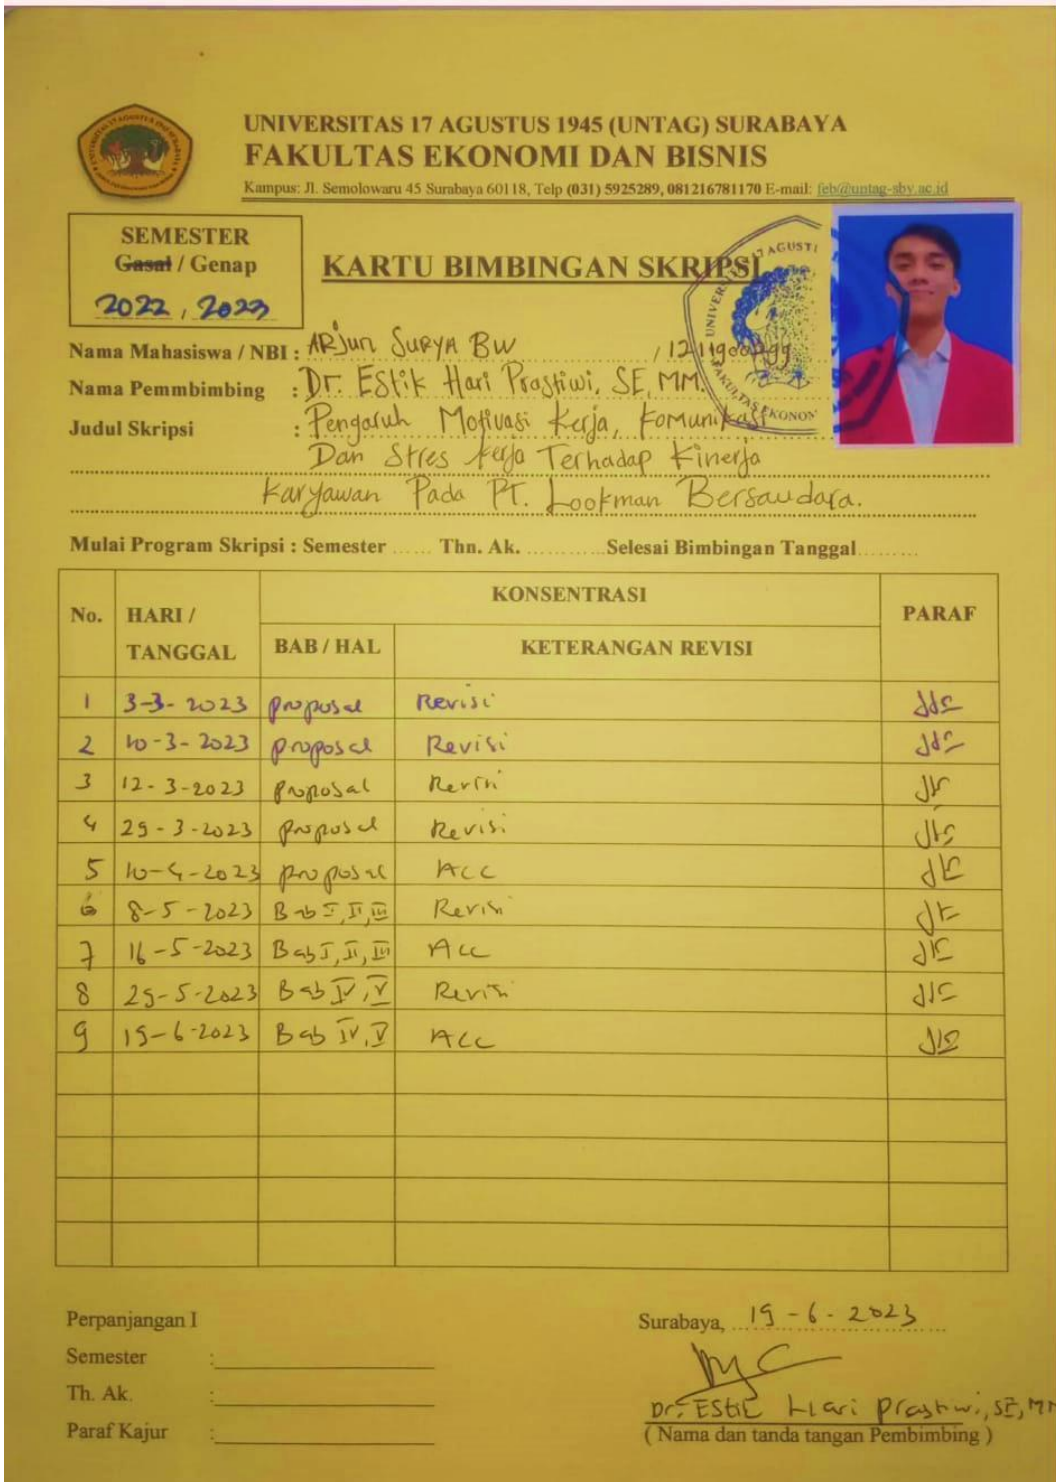 UNIVERSITAS 17 AGUSTUS 1945 (UNTAG) SURABAYA
FAKULTAS EKONOMI DAN BISNIS
Kampus: Jl. Semolowaru 45 Surabaya 60118, Telp (031) 5925289, 081216781170 E-mail: feb@untag-sby.ac.id
SEMESTER
Gasal / Genap
2022, 2023
KARTU BIMBINGAN SKRIPSI
Nama Mahasiswa / NBI : ARjun SURYA BW /
Nama Pemmbimbing : Dr. Estik Hari Prastiwi, SE, MM.
Judul Skripsi : Pengaruh Motivasi Kerja, Komunikasi
Dan Stres Kerja Terhadap Kinerja
Karyawan Pada PT. Lookman Bersaudara.
Mulai Program Skripsi : Semester ...... Thn. Ak. ............Selesai Bimbingan Tanggal.........
No. HARI / TANGGAL KONSENTRASI PARAF
BAB / HAL KETERANGAN REVISI
1 3-3-2023 proposal Revisi
2 10-3-2023 proposal Revisi
3 12-3-2023 proposal Revisi
4 29-3-2023 proposal Revisi
5 10-4-2023 proposal ACC
6 8-5-2023 Bab I, II, III Revisi
7 16-5-2023 Bab I, II, III Acc
8 29-5-2023 Bab IV, V Revisi
9 19-6-2023 Bab IV, V ACC
Perpanjangan I
Semester :
Th. Ak. :
Paraf Kajur :
Surabaya, 19-6-2023
Dr. Estik Hari Prastiwi, SE, MM
( Nama dan tanda tangan Pembimbing )